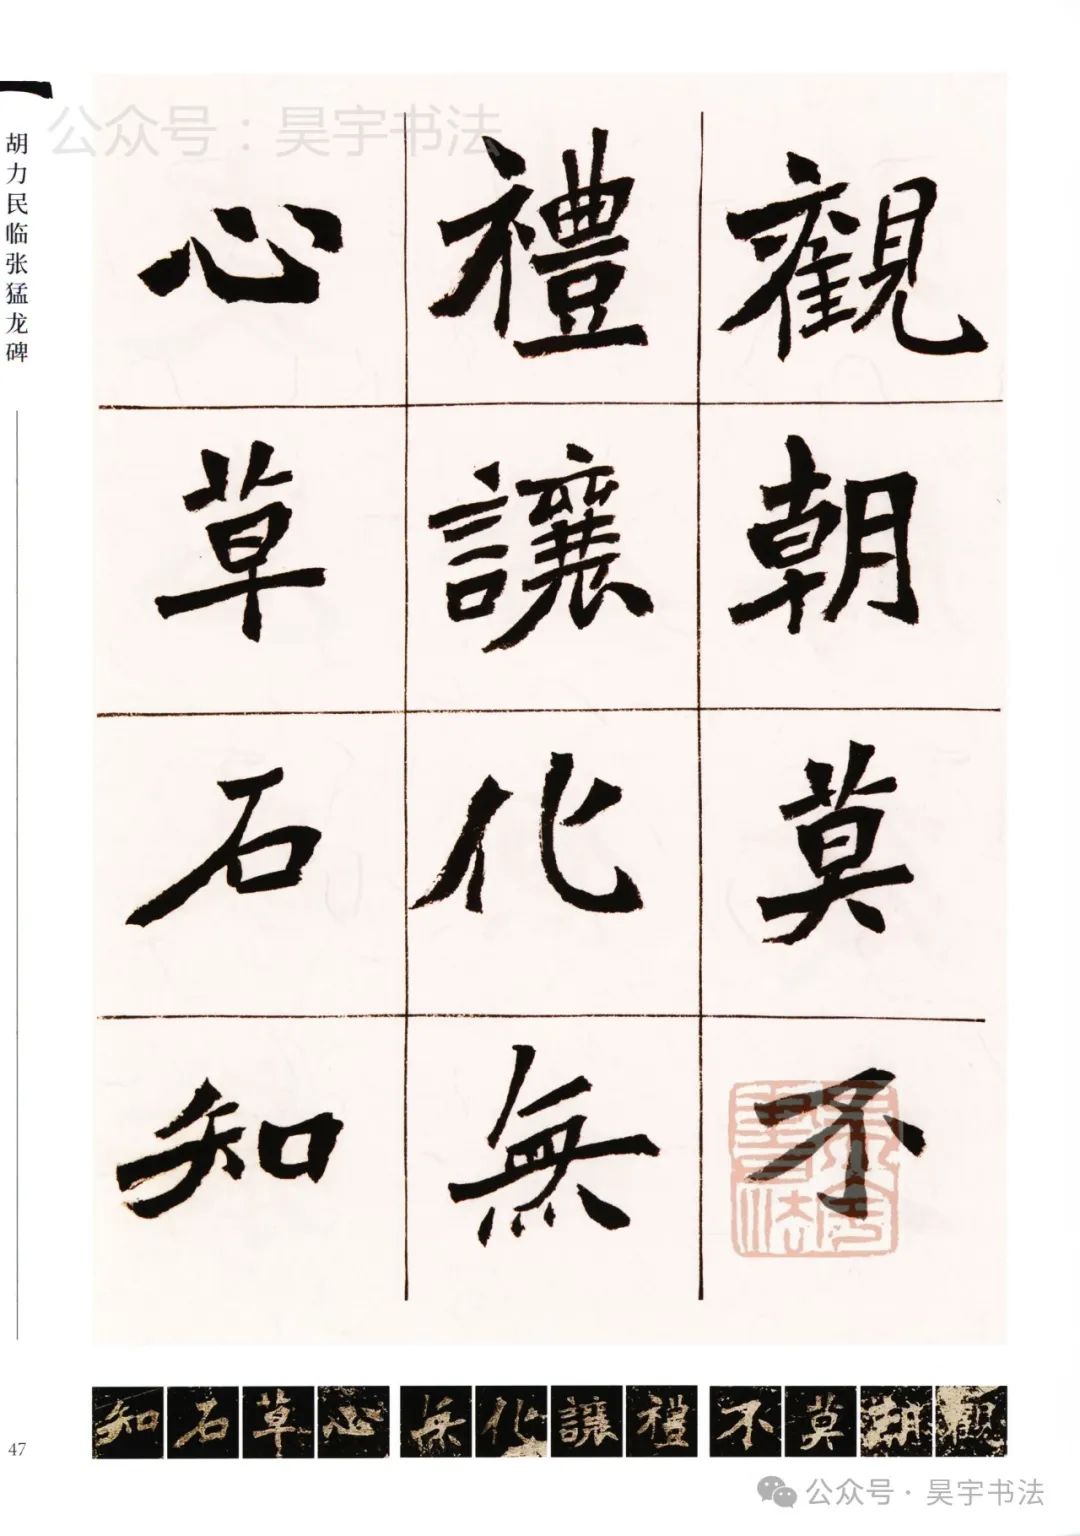 公众号：昊宇书法
胡力民临张猛龙碑
觀朝莫不
禮讓化無
心草石知
知石草心无化讓禮不莫朝觀
47
公众号·昊宇书法